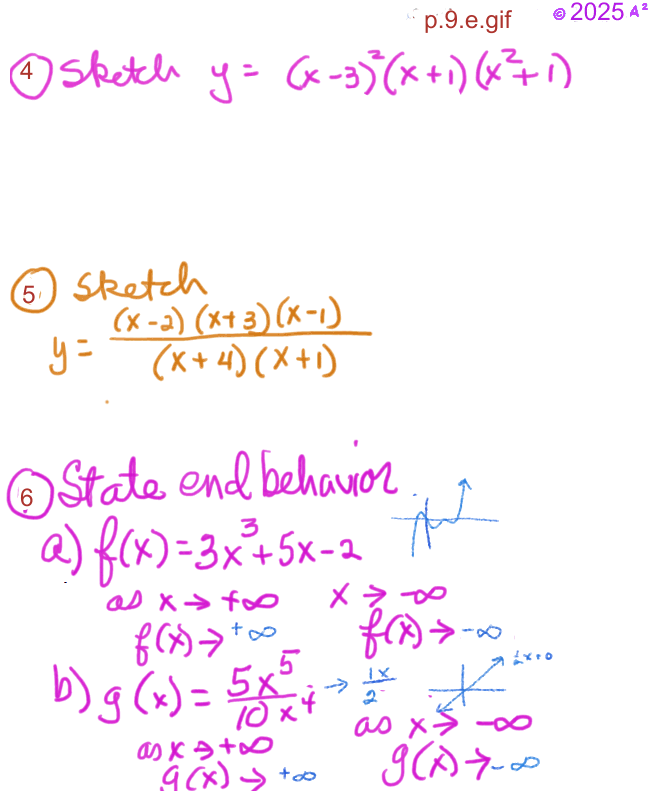 p.9.e.gif © 2025 A²
④ Sketch y = (x-3)²(x+1)(x²+1)
⑤ Sketch
y = (x-2)(x+3)(x-1) / (x+4)(x+1)
⑥ State end behavior
a) f(x) = 3x³+5x-2
as x → +∞ x → -∞
f(x) → +∞ f(x) → -∞
b) g(x) = 5x⁵ / 10x⁴ → 1x / 2 ½x+0
as x → -∞
as x → +∞
g(x) → +∞ g(x) → -∞